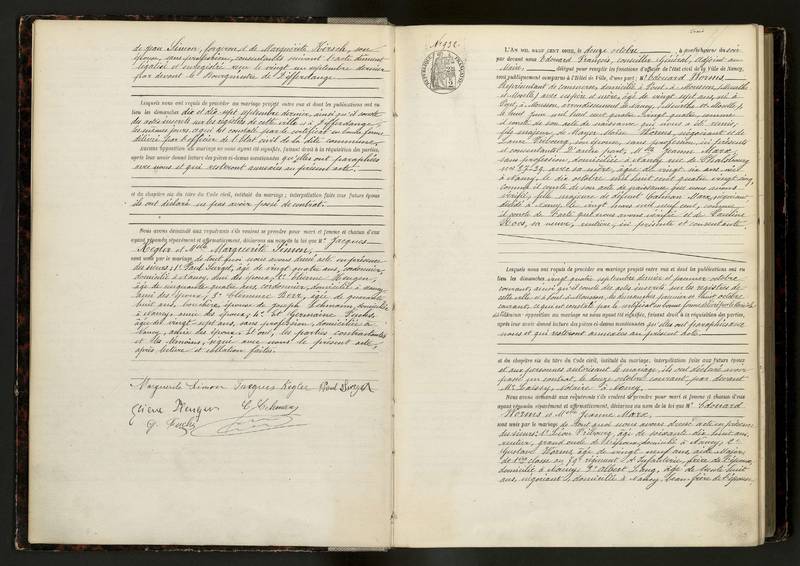 de Jean Simon, forgeron et de Marguerite Kirsch, son
épouse, sans profession, consentants suivant l'acte dûment
légalisé et enregistré reçu le vingt un septembre dernier
par devant le Bourgmestre de Differdange
Lesquels nous ont requis de procéder au mariage projeté entre eux et dont les publications ont eu
lieu les dimanches dix et dix sept septembre dernier, ainsi qu'il conste
des actes inscrits sur les registres de cette ville et à Differdange
les mêmes jours, ce qui est constaté par le certificat en bonne forme
délivré par l'officier de l'état civil de la dite commune,
aucune opposition au mariage ne nous ayant été signifiée, faisant droit à la réquisition des parties,
après leur avoir donné lecture des pièces et-dessus mentionnées qu'elles ont paraphées
avec nous et qui resteront annexées au présent acte.
et du chapitre six du titre du Code civil, intitulé du mariage; interpellation faite aux futurs époux
ils ont déclaré ne pas avoir passé de contrat.
Nous avons demandé aux requérants s'ils veulent se prendre pour mari et femme et chacun d'eux
ayant répondu séparément et affirmativement, déclarons au nom de la loi que Mr Jacques
Regler et Melle Marguerite Simon,
sont unis par le mariage de tout quoi nous avons dressé acte en présence
des sieurs: 1° Paul Burget, âgé de vingt quatre ans, cordonnier,
domicilié à Nancy, ami des époux, 2° Etienne Kenger,
âgé de cinquante quatre ans, cordonnier, domicilié à Nancy
ami des époux; 3° Clémence Boxx, âgée de quarante
huit ans, bouchère, épouse de Joseph Lehmann, domiciliée
à Nancy, amie des époux; 4° et Germaine Fuchs,
âgée de vingt sept ans, sans profession, domiciliée à
Nancy, amie des époux. Et ont, les parties contractantes
et les témoins, signé avec nous le présent acte,
après lecture et collation faites.
Marguerite Simon Jacques Regler Paul Burget
Etiene Kenger C. Lehmann
G. Fuchs
N° 932
L'AN MIL NEUF CENT ONZE, le douze octobre, à quatre heures du soir
par devant nous Edouard François, conseiller Général, adjoint au
Maire, délégué pour remplir les fonctions d'officier de l'état civil de la Ville de Nancy,
sont publiquement comparus à l'Hôtel de Ville, d'une part, Mr Edouard Worms,
Représentant de commerce, domicilié à Pont à Mousson, (Meurthe
et Moselle) avec ses père et mère, âgé de vingt sept ans, né à
Pont à Mousson, arrondissement de Nancy, (Meurthe et Moselle)
le huit juin mil huit cent quatre vingt quatre, comme
il conste de son acte de naissance qui nous a été remis,
fils majeur de Mayer Moïse Worms, négociant et de
Laure Fribourg, son épouse, sans profession, ici présents
et consentants. D'autre part, Melle Jeanne Marx,
sans profession, domiciliée à Nancy rue de Phalsbourg
nos 27-29, avec sa mère, âgée de vingt six ans, née
à Nancy, le dix octobre mil huit cent quatre vingt cinq,
comme il conste de son acte de naissance que nous avons
vérifié, fille majeure de défunt Calman Marx, négociant
décédé à Nancy, le vingt mars mil neuf cent, comme
il conste de l'acte que nous avons vérifié et de Pauline
Bloch, sa veuve, rentière, ici présente et consentante.
Lesquels nous ont requis de procéder au mariage projeté entre eux et dont les publications ont eu
lieu les dimanches vingt quatre septembre dernier et premier octobre
courant, ainsi qu'il conste des actes inscrits sur les registres de
cette ville et à Pont à Mousson, les dimanches premier et huit octobre
courant, ce qui est constaté par le certificat en bonne forme
opposition au mariage ne nous ayant été signifiée, faisant droit à la réquisition des parties,
après leur avoir donné lecture des pièces ci-dessus mentionnées qu'elles ont paraphées avec
nous et qui resteront annexées au présent acte.
et du chapitre six du titre du Code civil, intitulé du mariage, interpellation faite aux futurs époux
et aux personnes autorisant le mariage, ils ont déclaré avoir
passé un contrat, le douze octobre courant par devant
Me Laissy, notaire à Nancy.
Nous avons demandé aux requérants s'ils veulent se prendre pour mari et femme et chacun d'eux
ayant répondu séparément et affirmativement, déclarons au nom de la loi que Mr Edouard
Worms et Melle Jeanne Marx,
sont unis par le mariage de tout quoi nous avons dressé acte en présence
des sieurs: 1° Léon Fribourg, âgé de soixante dix huit ans,
rentier, grand oncle de l'époux, domicilié à Nancy; 2°
Gustave Worms, âgé de vingt neuf ans, aide Major
de 1ère classe au 79e régiment d'Infanterie, frère de l'époux,
domicilié à Nancy; 3° Albert Lang, âgé de trente huit
ans, négociant, domicilié à Nancy, beau-frère de l'épouse,